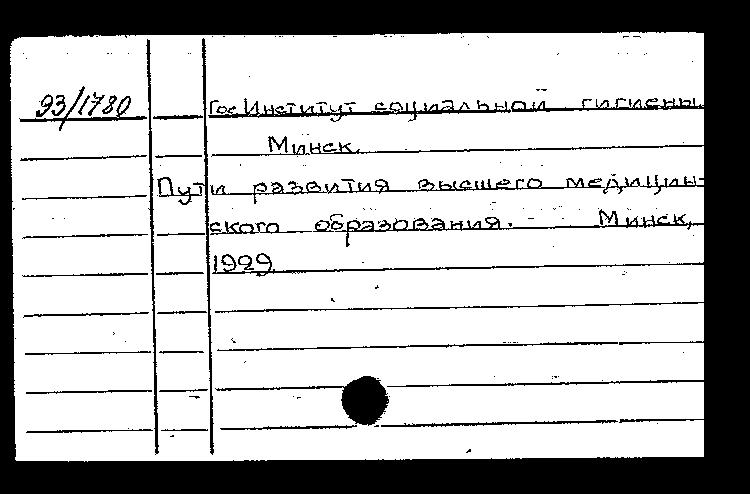 93/1780
Гос Институт социальной гигиены.
Минск.
Пути развития высшего медицин-
ского образования. - Минск,
1929